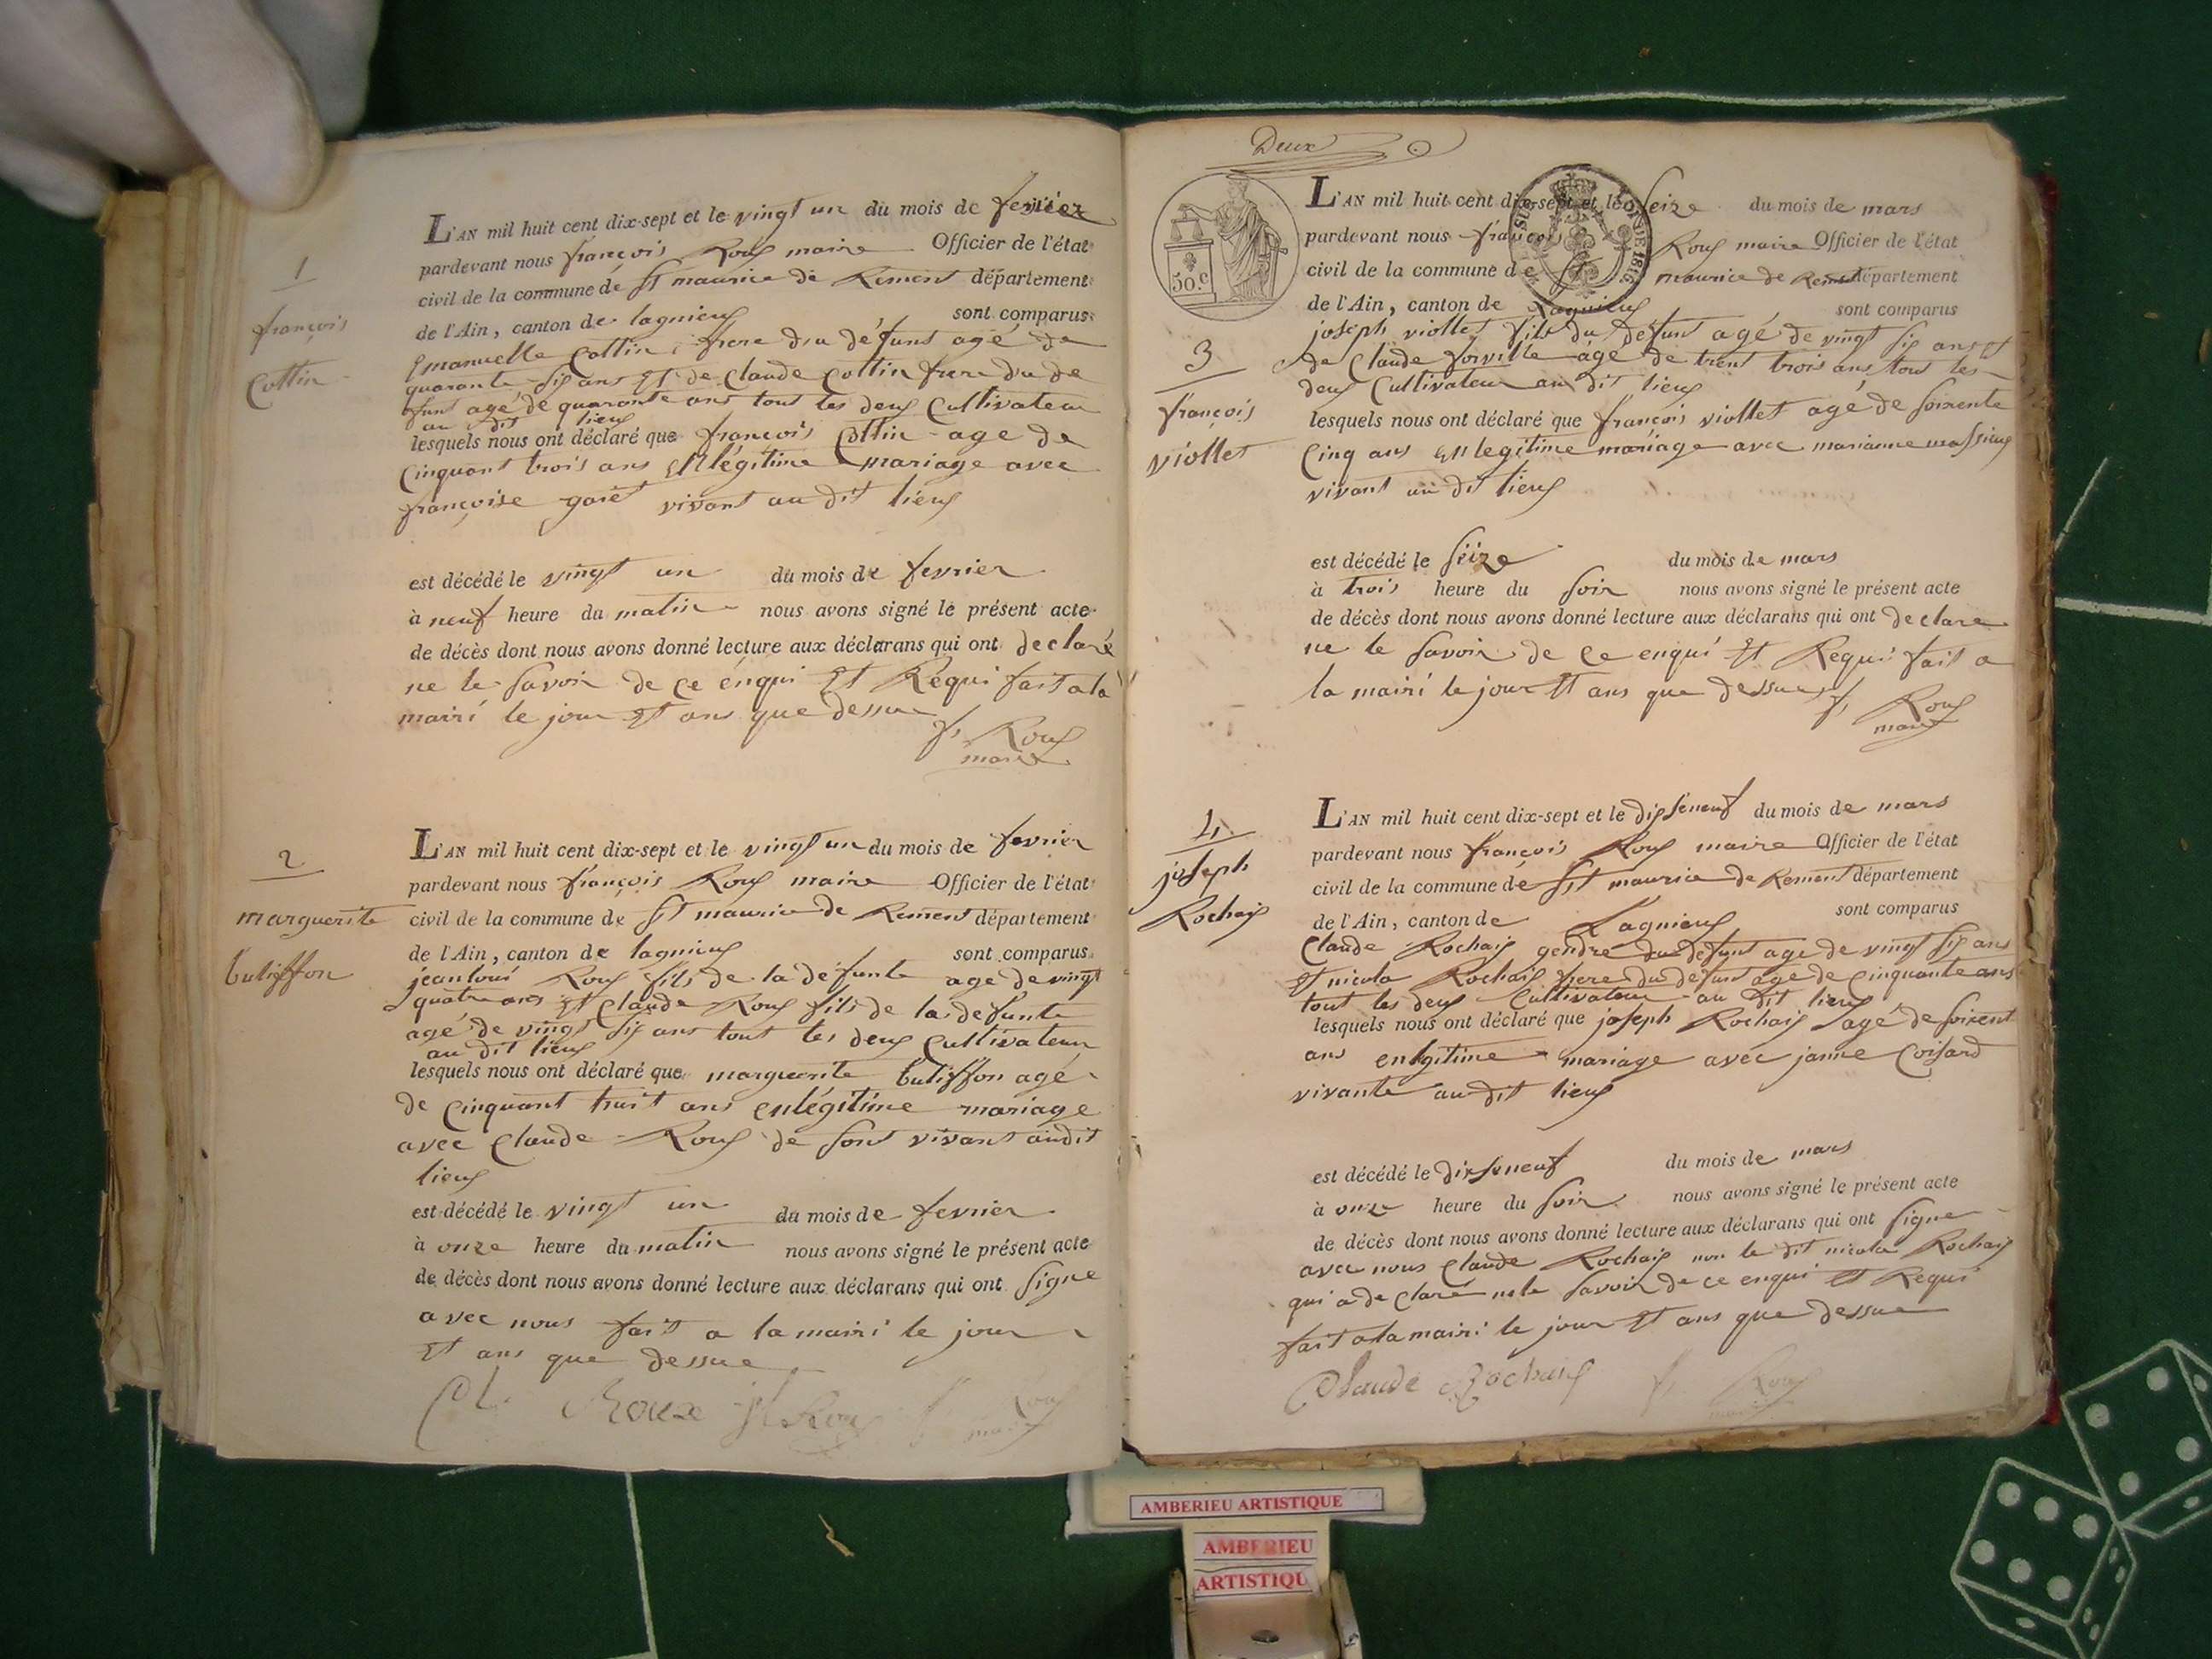 1
françois
Collin
L'AN mil huit cent dix-sept et le vingt un du mois de fevrier
pardevant nous françois Roux maire Officier de l'état
civil de la commune de St maurice de Remens département
de l'Ain, canton de lagnieux sont comparus
Emanuelle Collin, frere du défunt agé de
quarante six ans Et de Claude Collin frere du de
funt agé de quarante ans tout les deux Cultivateur
au dit lieux
lesquels nous ont déclaré que françois Collin age de
Cinquant trois ans En légitime mariage avec
françoise garet vivant au dit lieux
est décédé le vingt un du mois de fevrier
à neuf heure du matin nous avons signé le présent acte
de décès dont nous avons donné lecture aux déclarans qui ont declaré
ne le savoir de ce enqui Et Requi fait a la
mairi le jour Et ans que dessue
f, Roux
maire
2
marguerite
butiffon
L'AN mil huit cent dix-sept et le vingt un du mois de fevrier
pardevant nous françois Roux maire Officier de l'état
civil de la commune de St maurice de Remens département
de l'Ain, canton de lagnieux sont comparus
jean loui Roux fils de la défunte age de vingt
quatre ans Et Claude Roux fils de la defunte
agé de vingt six ans tout les deux Cultivateur
au dit lieux
lesquels nous ont déclaré que marguerite butiffon agé
de Cinquant huit ans en légitime mariage
avec Claude Roux de sont vivant au dit
lieux
est décédé le vingt un du mois de fevrier
à onze heure du matin nous avons signé le présent acte
de décès dont nous avons donné lecture aux déclarans qui ont signe
avec nous fait a la mairi le jour
Et ans que dessue
Cl. Roux jl Roux f Roux
maire
Deux
50.c
L'AN mil huit cent dix-sept et le Seize du mois de mars
pardevant nous françois Roux maire Officier de l'état
civil de la commune de St maurice de Remens département
de l'Ain, canton de Lagnieux sont comparus
3
françois
viollet
joseph viollet fils du défunt agé de vingt six ans Et
de Claude age de trent trois ans tout les
deux Cultivateur au dit lieux
lesquels nous ont déclaré que françois viollet agé de soixente
Cinq ans En legitime mariage avec marianne massieux
vivant au dit lieux
est décédé le seize du mois de mars
à trois heure du soir nous avons signé le présent acte
de décès dont nous avons donné lecture aux déclarans qui ont declare
ne le savoir de ce enqui Et Requi fait a
la mairi le jour Et ans que dessue f, Roux
maire
4
joseph
Rochaix
L'AN mil huit cent dix-sept et le dixseneuf du mois de mars
pardevant nous françois Roux maire Officier de l'état
civil de la commune de St maurice de Remens département
de l'Ain, canton de Lagnieux sont comparus
Claude Rochaix gendre du defunt age de vingt six ans
Et nicola Rochaix frere du defunt age de Cinquante ans
tout les deux Cultivateur au dit lieux
lesquels nous ont déclaré que joseph Rochaix agé de soixent
ans en lgitime mariage avec janne Coisard
vivante au dit lieux
est décédé le dixseneuf du mois de mars
à onze heure du soir nous avons signé le présent acte
de décès dont nous avons donné lecture aux déclarans qui ont signe
avec nous Claude Rochaix non le dit nicola Rochaix
qui a declaré ne le savoir de ce enqui Et Requi
fait a la mairi le jour Et ans que dessue
Claude Rochaix f, Roux
maire
AMBERIEU ARTISTIQUE
AMBERIEU
ARTISTIQU